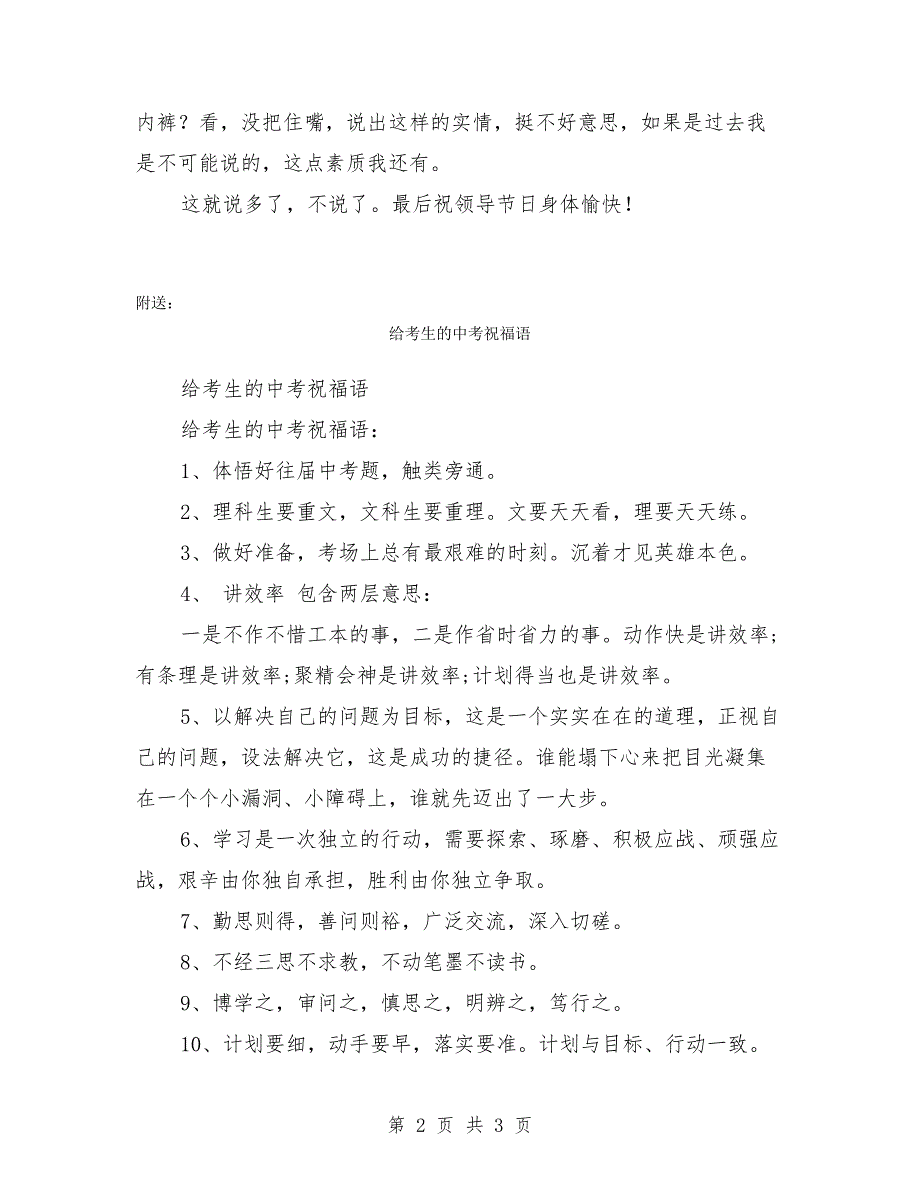 内裤？看，没把住嘴，说出这样的实情，挺不好意思，如果是过去我
是不可能说的，这点素质我还有。
这就说多了，不说了。最后祝领导节日身体愉快！
附送：
给考生的中考祝福语
给考生的中考祝福语
给考生的中考祝福语：
1、体悟好往届中考题，触类旁通。
2、理科生要重文，文科生要重理。文要天天看，理要天天练。
3、做好准备，考场上总有最艰难的时刻。沉着才见英雄本色。
4、 讲效率 包含两层意思：
一是不作不惜工本的事，二是作省时省力的事。动作快是讲效率;
有条理是讲效率;聚精会神是讲效率;计划得当也是讲效率。
5、以解决自己的问题为目标，这是一个实实在在的道理，正视自
己的问题，设法解决它，这是成功的捷径。谁能塌下心来把目光凝集
在一个个小漏洞、小障碍上，谁就先迈出了一大步。
6、学习是一次独立的行动，需要探索、琢磨、积极应战、顽强应
战，艰辛由你独自承担，胜利由你独立争取。
7、勤思则得，善问则裕，广泛交流，深入切磋。
8、不经三思不求教，不动笔墨不读书。
9、博学之，审问之，慎思之，明辨之，笃行之。
10、计划要细，动手要早，落实要准。计划与目标、行动一致。
第 2 页 共 3 页